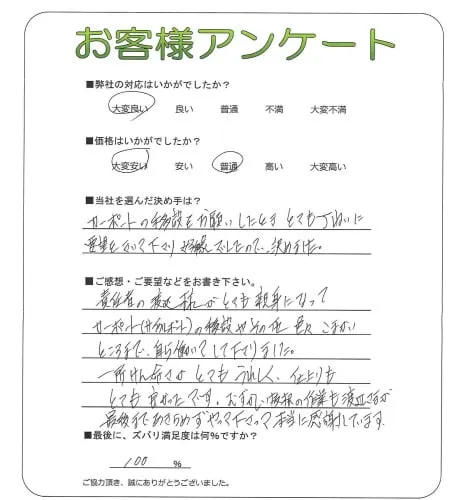 お客様アンケート
■弊社の対応はいかがでしたか？
大変良い 良い 普通 不満 大変不満
■価格はいかがでしたか？
大変安い 安い 普通 高い 大変高い
■当社を選んだ決め手は？
カーポートの移設をお願いしたとき とても丁ねいに
要望をきいて下さり 好感でしたので、決めました。
■ご感想・ご要望などをお書き下さい。
責任者の が とても 親身になって
カーポート(サイクルポート)の移設やその他 色々 こまかい
ところまで、自ら働いて して下さりました。
一所けん命さが とても うれしく、仕上りも
とても 良かったです。 の作業も
最後まで あきらめず やって下さって 本当に感謝しています。
■最後に、ズバリ満足度は何％ですか？
100 ％
ご協力頂き、誠にありがとうございました。